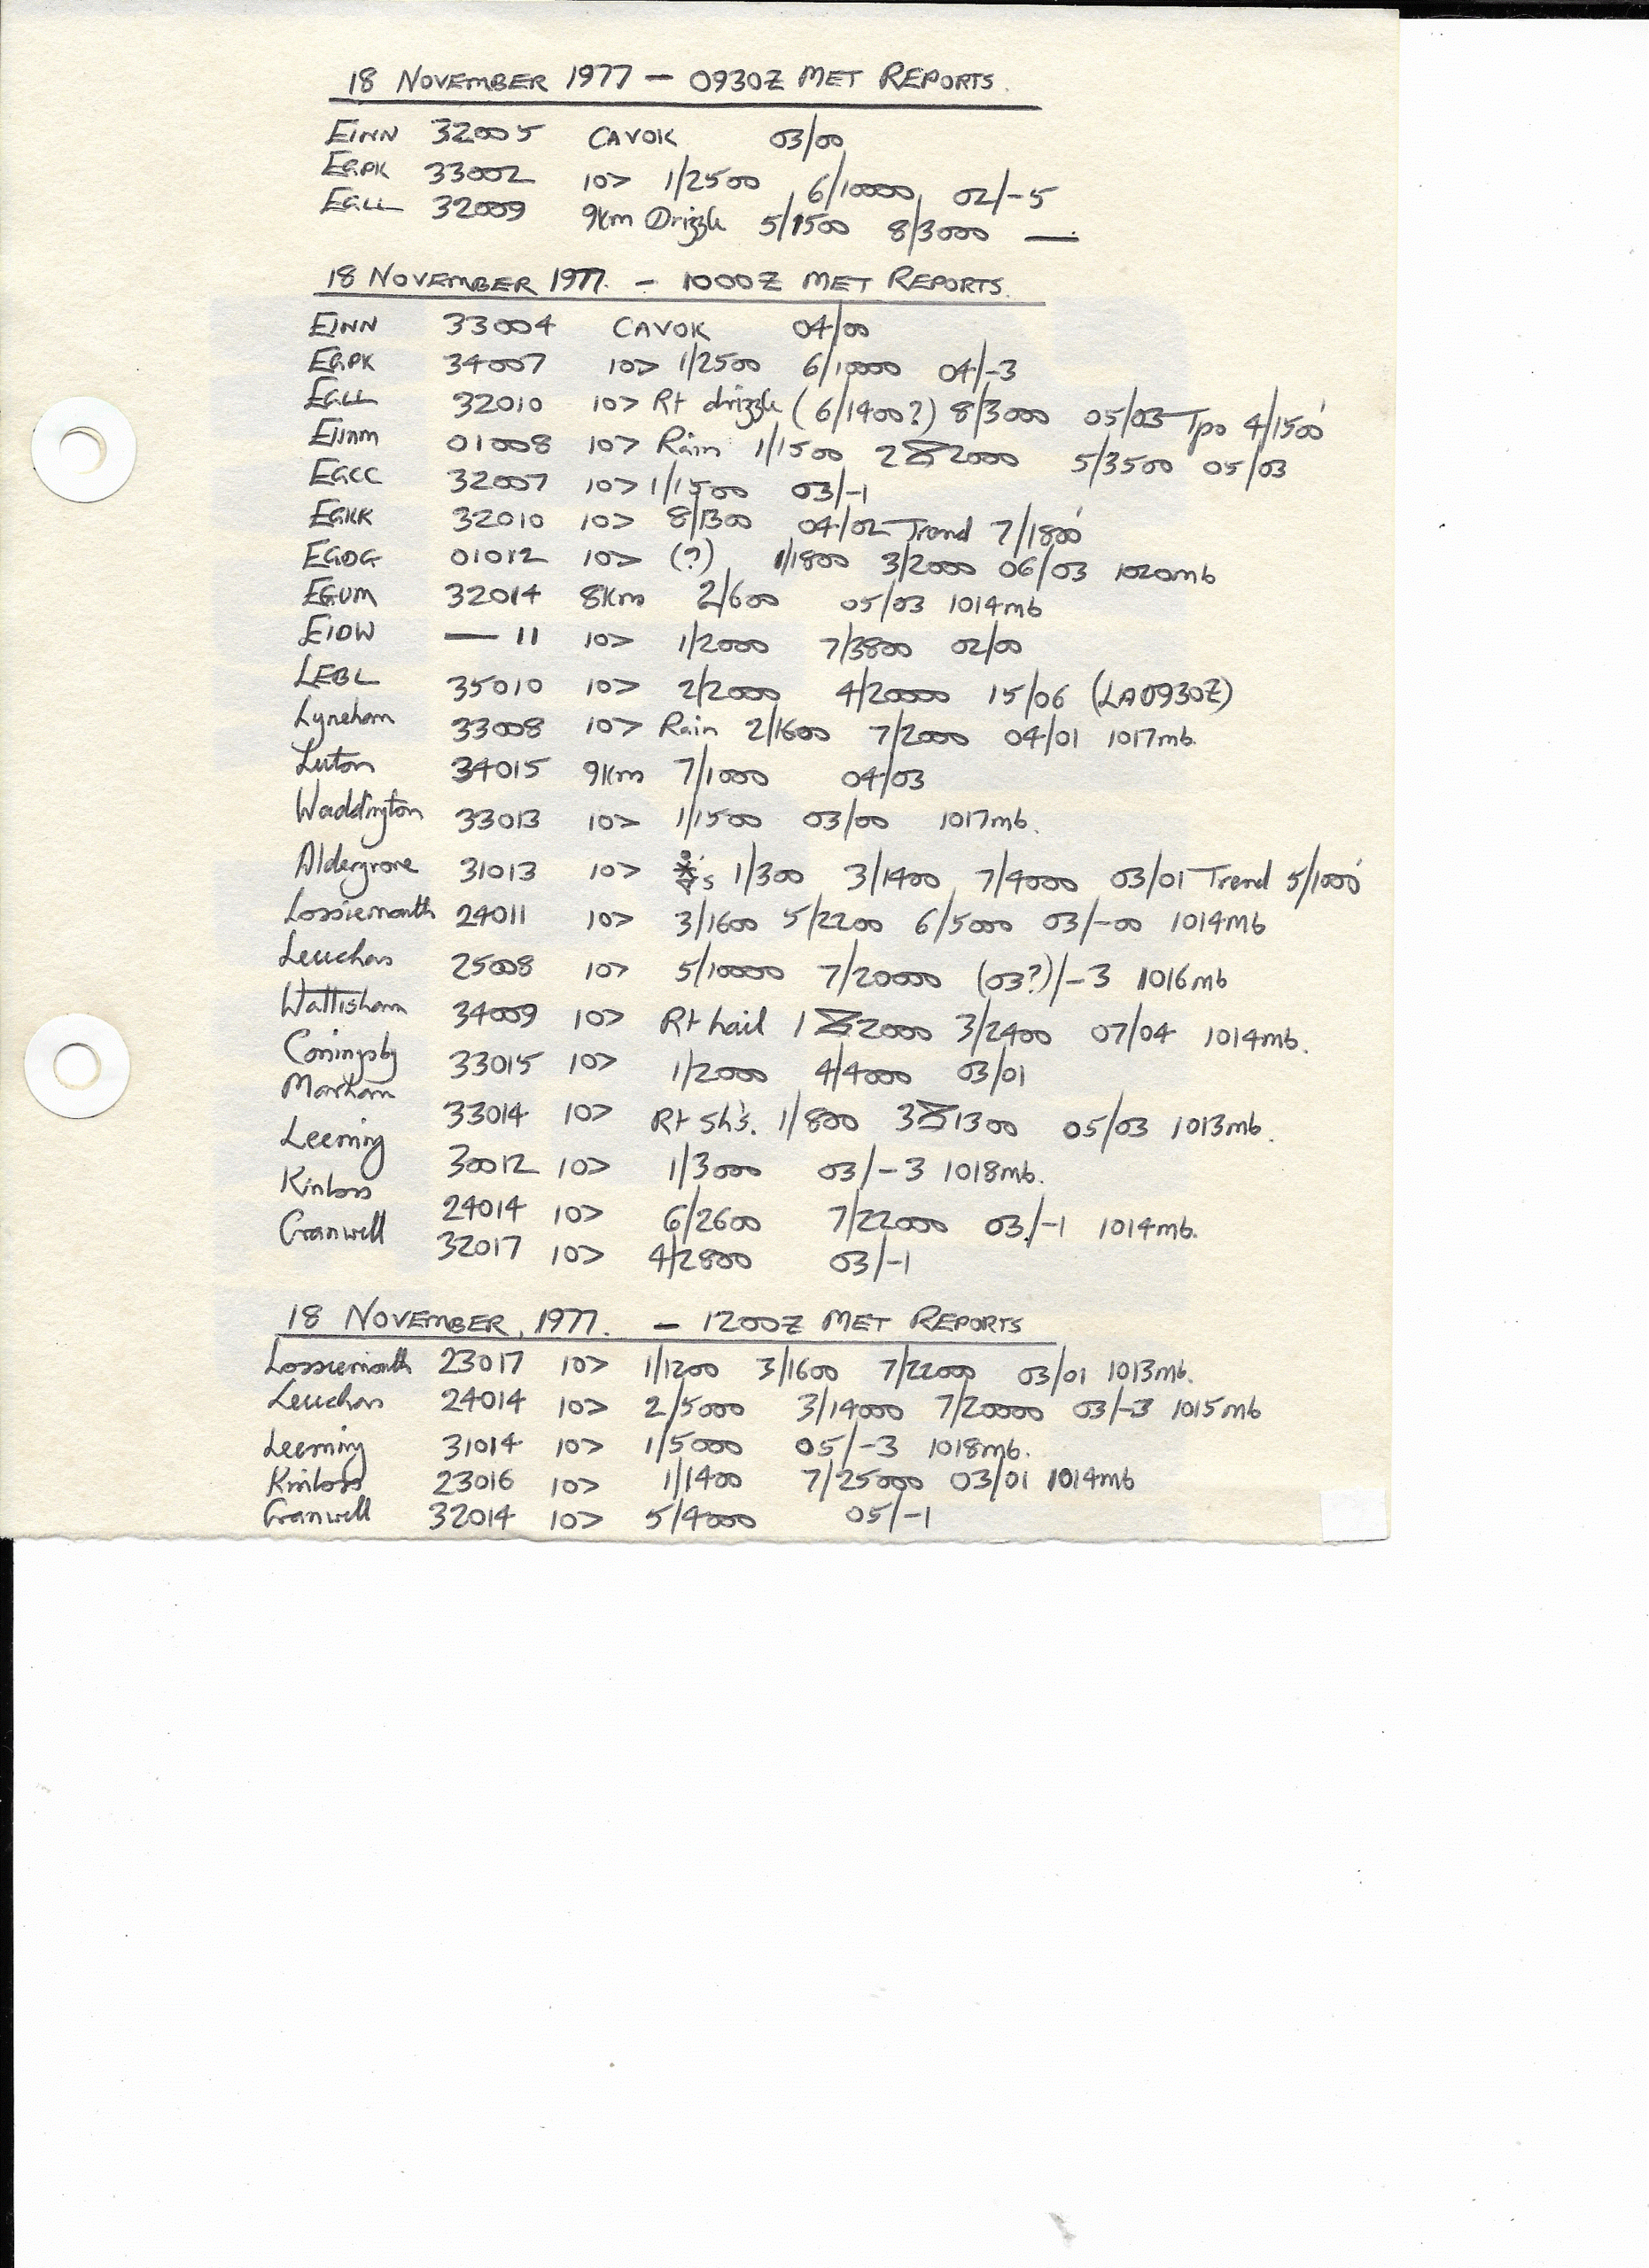 18 NOVEMBER 1977 — 0930Z MET REPORTS.
EINN 32005 CAVOK 03/00
EGPK 33002 10> 1/2500 6/10000 02/-5
EGLL 32009 9Km Drizzle 5/1500 8/3000 —
18 NOVEMBER 1977. — 1000Z MET REPORTS.
EINN 33004 CAVOK 04/00
EGPK 34007 10> 1/2500 6/10000 04/-3
EGLL 32010 10> Rt drizzle (6/1400?) 8/3000 05/03 Tpo 4/1500'
01008 10> Rain 1/1500 2 2000 5/3500 05/03
EGCC 32007 10> 1/1500 03/-1
EGKK 32010 10> 8/1300 04/02 Trend 7/1800'
EGDG 01012 10> (?) 1/1800 3/2000 06/03 1020mb
EGUM 32014 8Km 2/600 05/03 1014mb
EIDW — 11 10> 1/2000 7/3800 02/00
LEBL 35010 10> 2/2000 4/20000 15/06 (LA0930Z)
Lyneham 33008 10> Rain 2/1600 7/2000 04/01 1017mb.
Luton 34015 9Km 7/1000 04/03
Waddington 33013 10> 1/1500 03/00 1017mb.
Aldergrove 31013 10> 1/300 3/1400 7/4000 03/01 Trend 5/1000'
Lossiemouth 24011 10> 3/1600 5/2200 6/5000 03/-00 1014mb
Leuchars 25008 10> 5/10000 7/20000 (03?)/-3 1016mb
Wattisham 34009 10> Rt hail 1 2000 3/2400 07/04 1014mb.
Coningsby 33015 10> 1/2000 4/4000 03/01
Marham 33014 10> Rt sh's. 1/800 3 1300 05/03 1013mb.
Leeming 30012 10> 1/3000 03/-3 1018mb.
Kinloss 24014 10> 6/2600 7/22000 03/-1 1014mb.
Cranwell 32017 10> 4/2800 03/-1
18 NOVEMBER, 1977. — 1200Z MET REPORTS
Lossiemouth 23017 10> 1/1200 3/1600 7/22000 03/01 1013mb.
Leuchars 24014 10> 2/5000 3/14000 7/20000 03/-3 1015mb
Leeming 31014 10> 1/5000 05/-3 1018mb.
Kinloss 23016 10> 1/1400 7/25000 03/01 1014mb
Cranwell 32014 10> 5/4000 05/-1